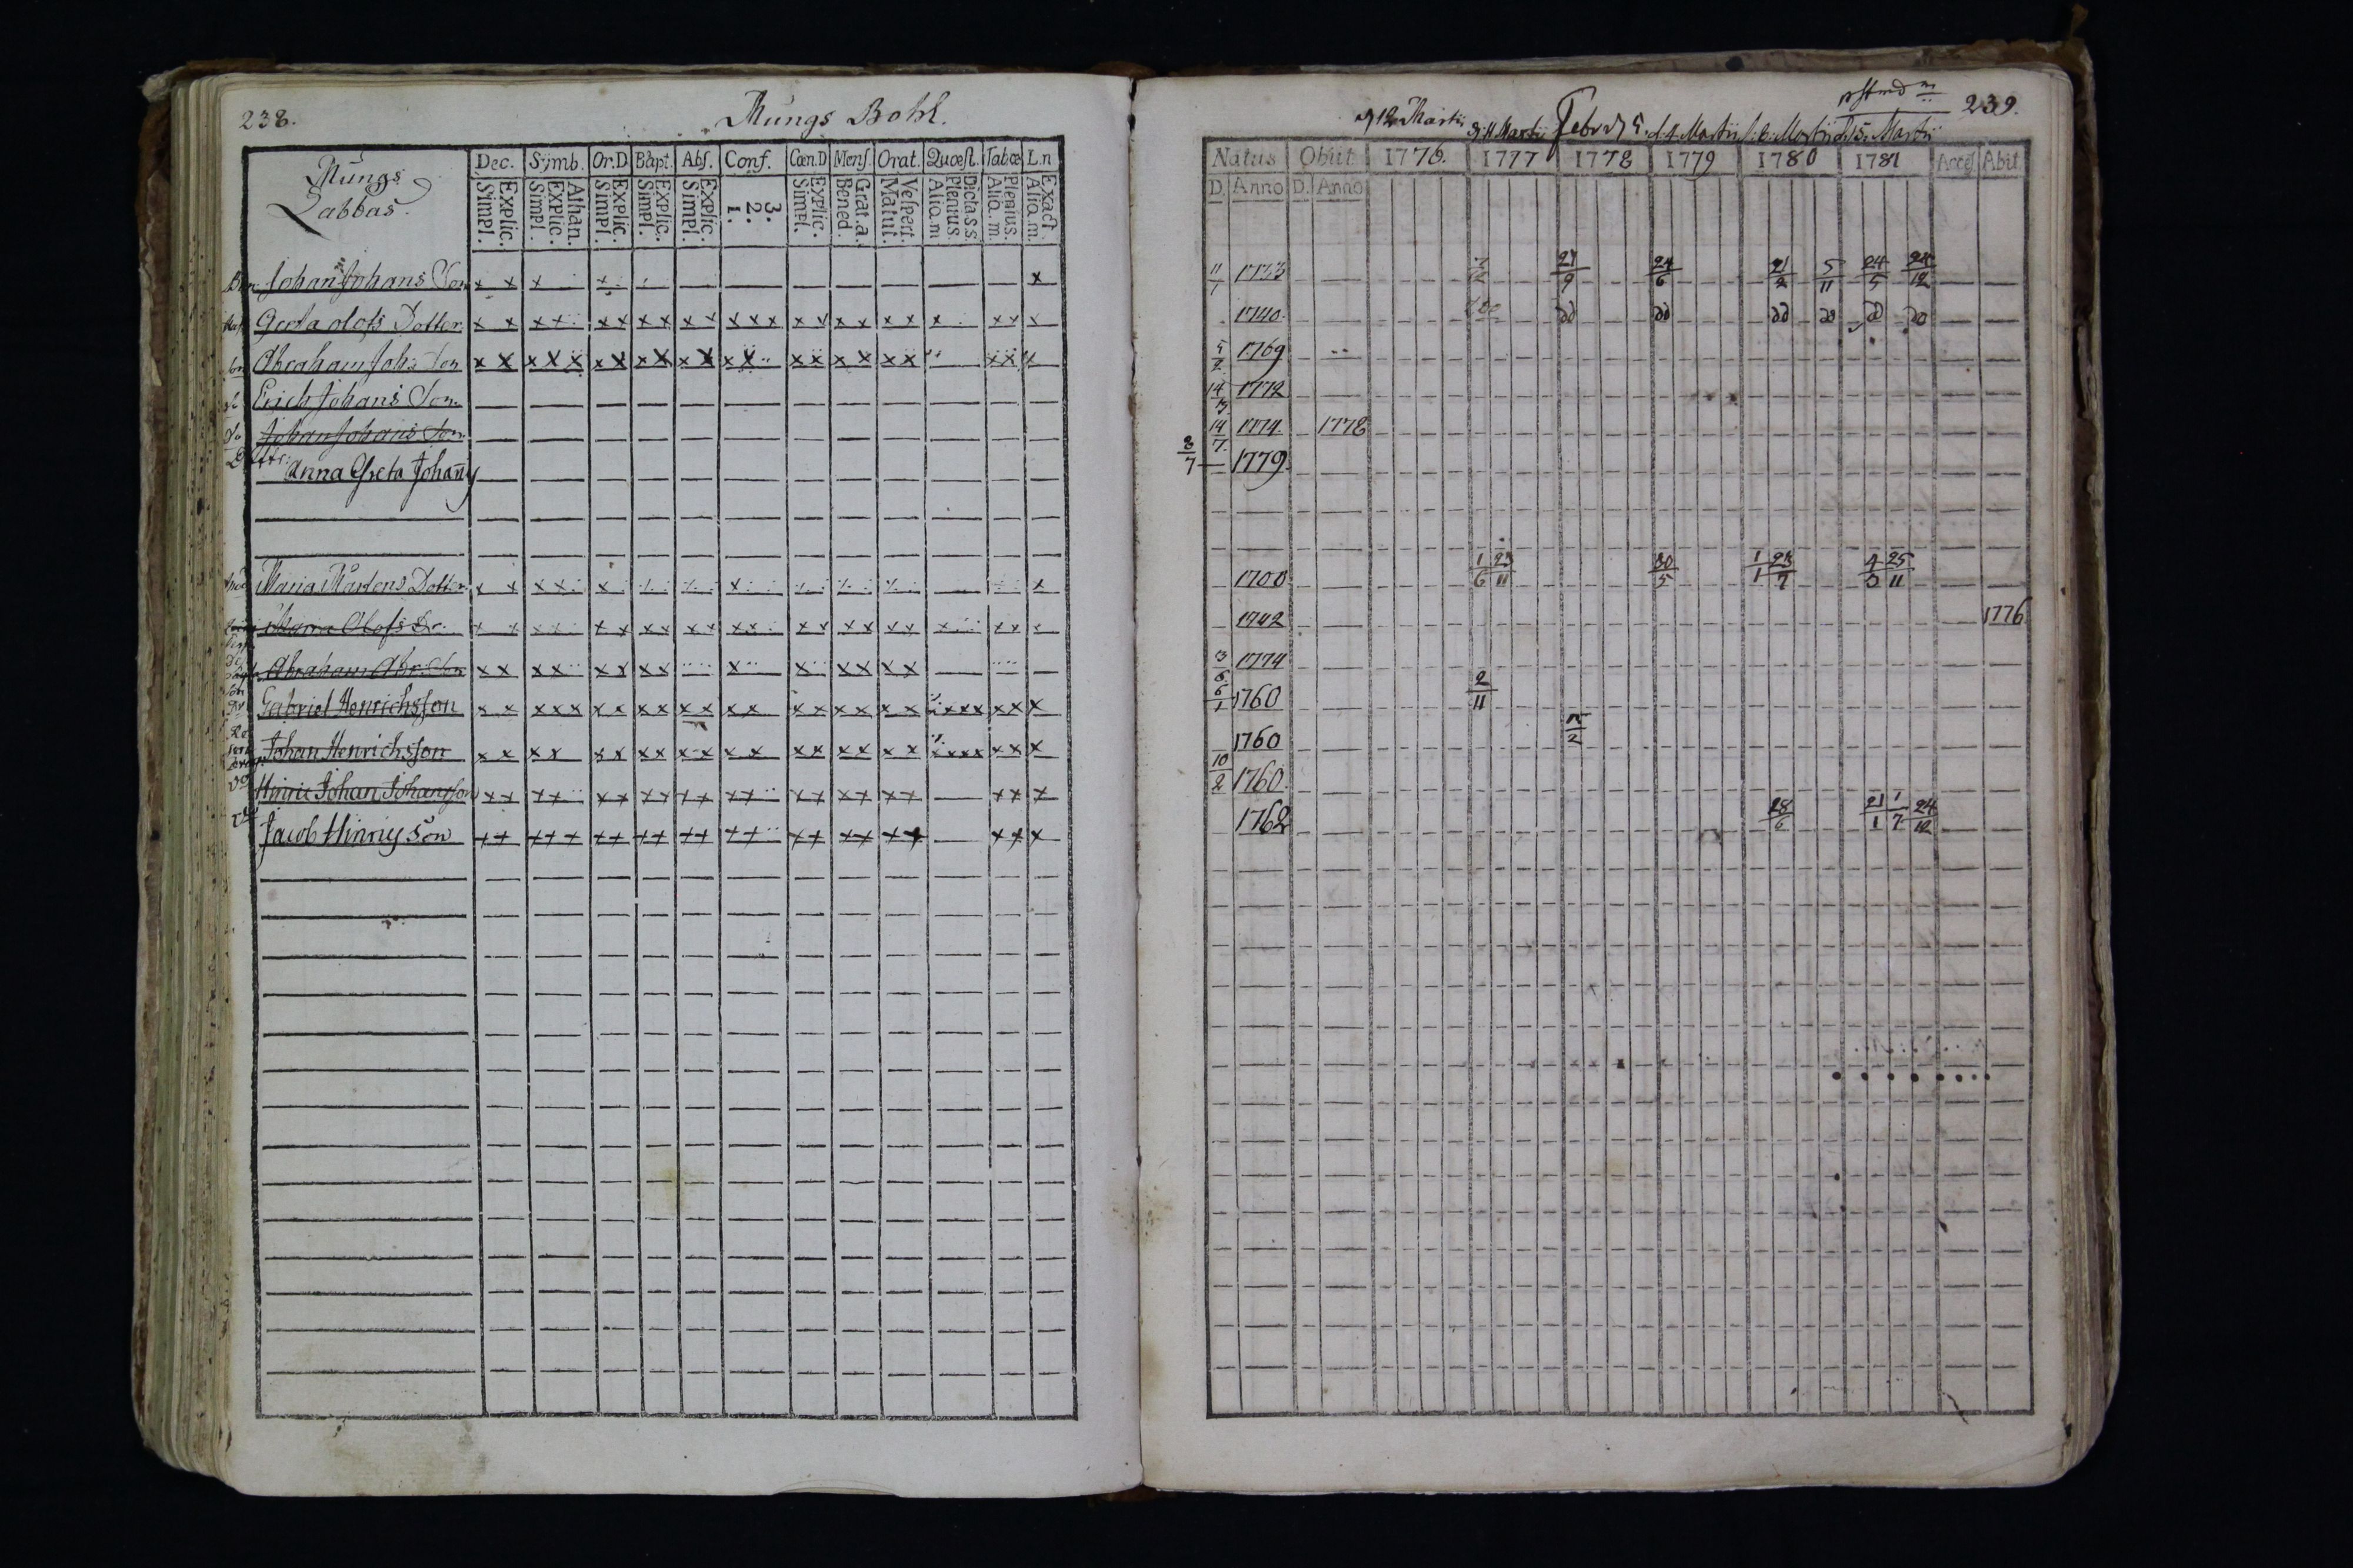 238.
Mungs Bohl.
Mungs
Labbas.
Dec. Symb. Or.D Bapt. Abs. Conf. Cœn.D Mens. Orat. Quœst. Tabœ L.n
Explic. Simpl. Athan. Explic. Simpl. Explic. Simpl. Explic. Simpl. Explic. Simpl. 3. 2. 1. Explic. Simpl. Grat.a. Bened. Vespert. Matut. Dictass. Plenius. Aliq.m Plenius. Aliq.m. Exact. Aliq.m.
Johan Johans Son
Greta Olofs Dotter
Abraham Johs Son
Erich Johans Son
Johan Johans Son
Anna Greta Johans
Maria Mårtens Dotter
Maria Olofs Dr.
Abraham Abr. Son
Gabriel Henrichsson
Johan Henrichsson
Hinric Johan Johansson
Jacob Hinrics Son
239.
d 12 Martii d. 11 Martii Febr d 5. d. 4 Martii d. 6. Martii d. 15. Martii
Natus Obiit 1776. 1777 1778 1779 1780 1781 Acceſ Abiit
D. Anno D. Anno
11/1 1733 27/9 24/6 21/2 5/11 24/5 24/12
1740 do do do do do do
5/2 1769
14/3 1772
14/7 1774 1778
8/7 1779
1700 1/6 23/11 30/5 1/1 23/7 4/3 25/11
1742 1776
3/6 1774
6/1 1760 2/11
1760
10/2 1760
1762 28/6 21/1 1/7 24/12